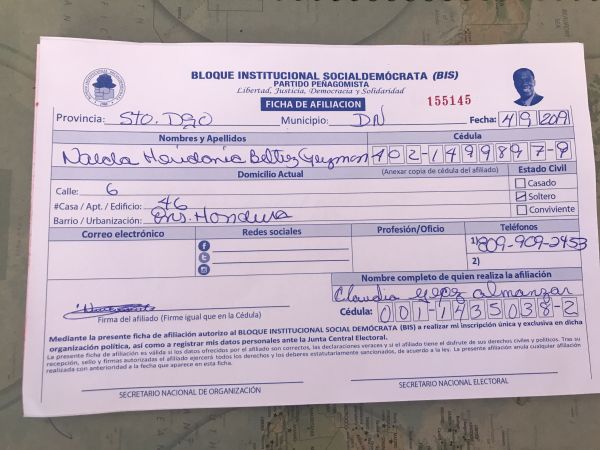 BLOQUE INSTITUCIONAL SOCIALDEMÓCRATA (BIS)
PARTIDO PEÑAGOMISTA
Libertad, Justicia, Democracia y Solidaridad
FICHA DE AFILIACION
155145
Provincia: STO. DGO Municipio: DN Fecha: 4/9/2019
Nombres y Apellidos Cédula
402-1499897-9
Domicilio Actual (Anexar copia de cédula del afiliado) Estado Civil
Calle: 6
#Casa / Apt. / Edificio: 46
Barrio / Urbanización: Ens. Honduras
Casado
Soltero
Conviviente
Correo electrónico Redes sociales Profesión/Oficio Teléfonos
1) 809-909-2453
2)
Nombre completo de quien realiza la afiliación
Claudia Almanzar
Cédula: 001-1435038-2
Firma del afiliado (Firme igual que en la Cédula)
Mediante la presente ficha de afiliación autorizo al BLOQUE INSTITUCIONAL SOCIAL DEMÓCRATA (BIS) a realizar mi inscripción única y exclusiva en dicha
organización política, así como a registrar mis datos personales ante la Junta Central Electoral.
La presente ficha de afiliación es válida si los datos ofrecidos por el afiliado son correctos, las declaraciones veraces y si el afiliado tiene el disfrute de sus derechos civiles y políticos. Tras su
recepción, sello y firmas autorizadas el afiliado ejercerá todos los derechos y los deberes estatutariamente sancionados, de acuerdo a la ley. La presente afiliación anula cualquier afiliación
realizada con anterioridad a la fecha que aparece en esta ficha.
SECRETARIO NACIONAL DE ORGANIZACIÓN SECRETARIO NACIONAL ELECTORAL